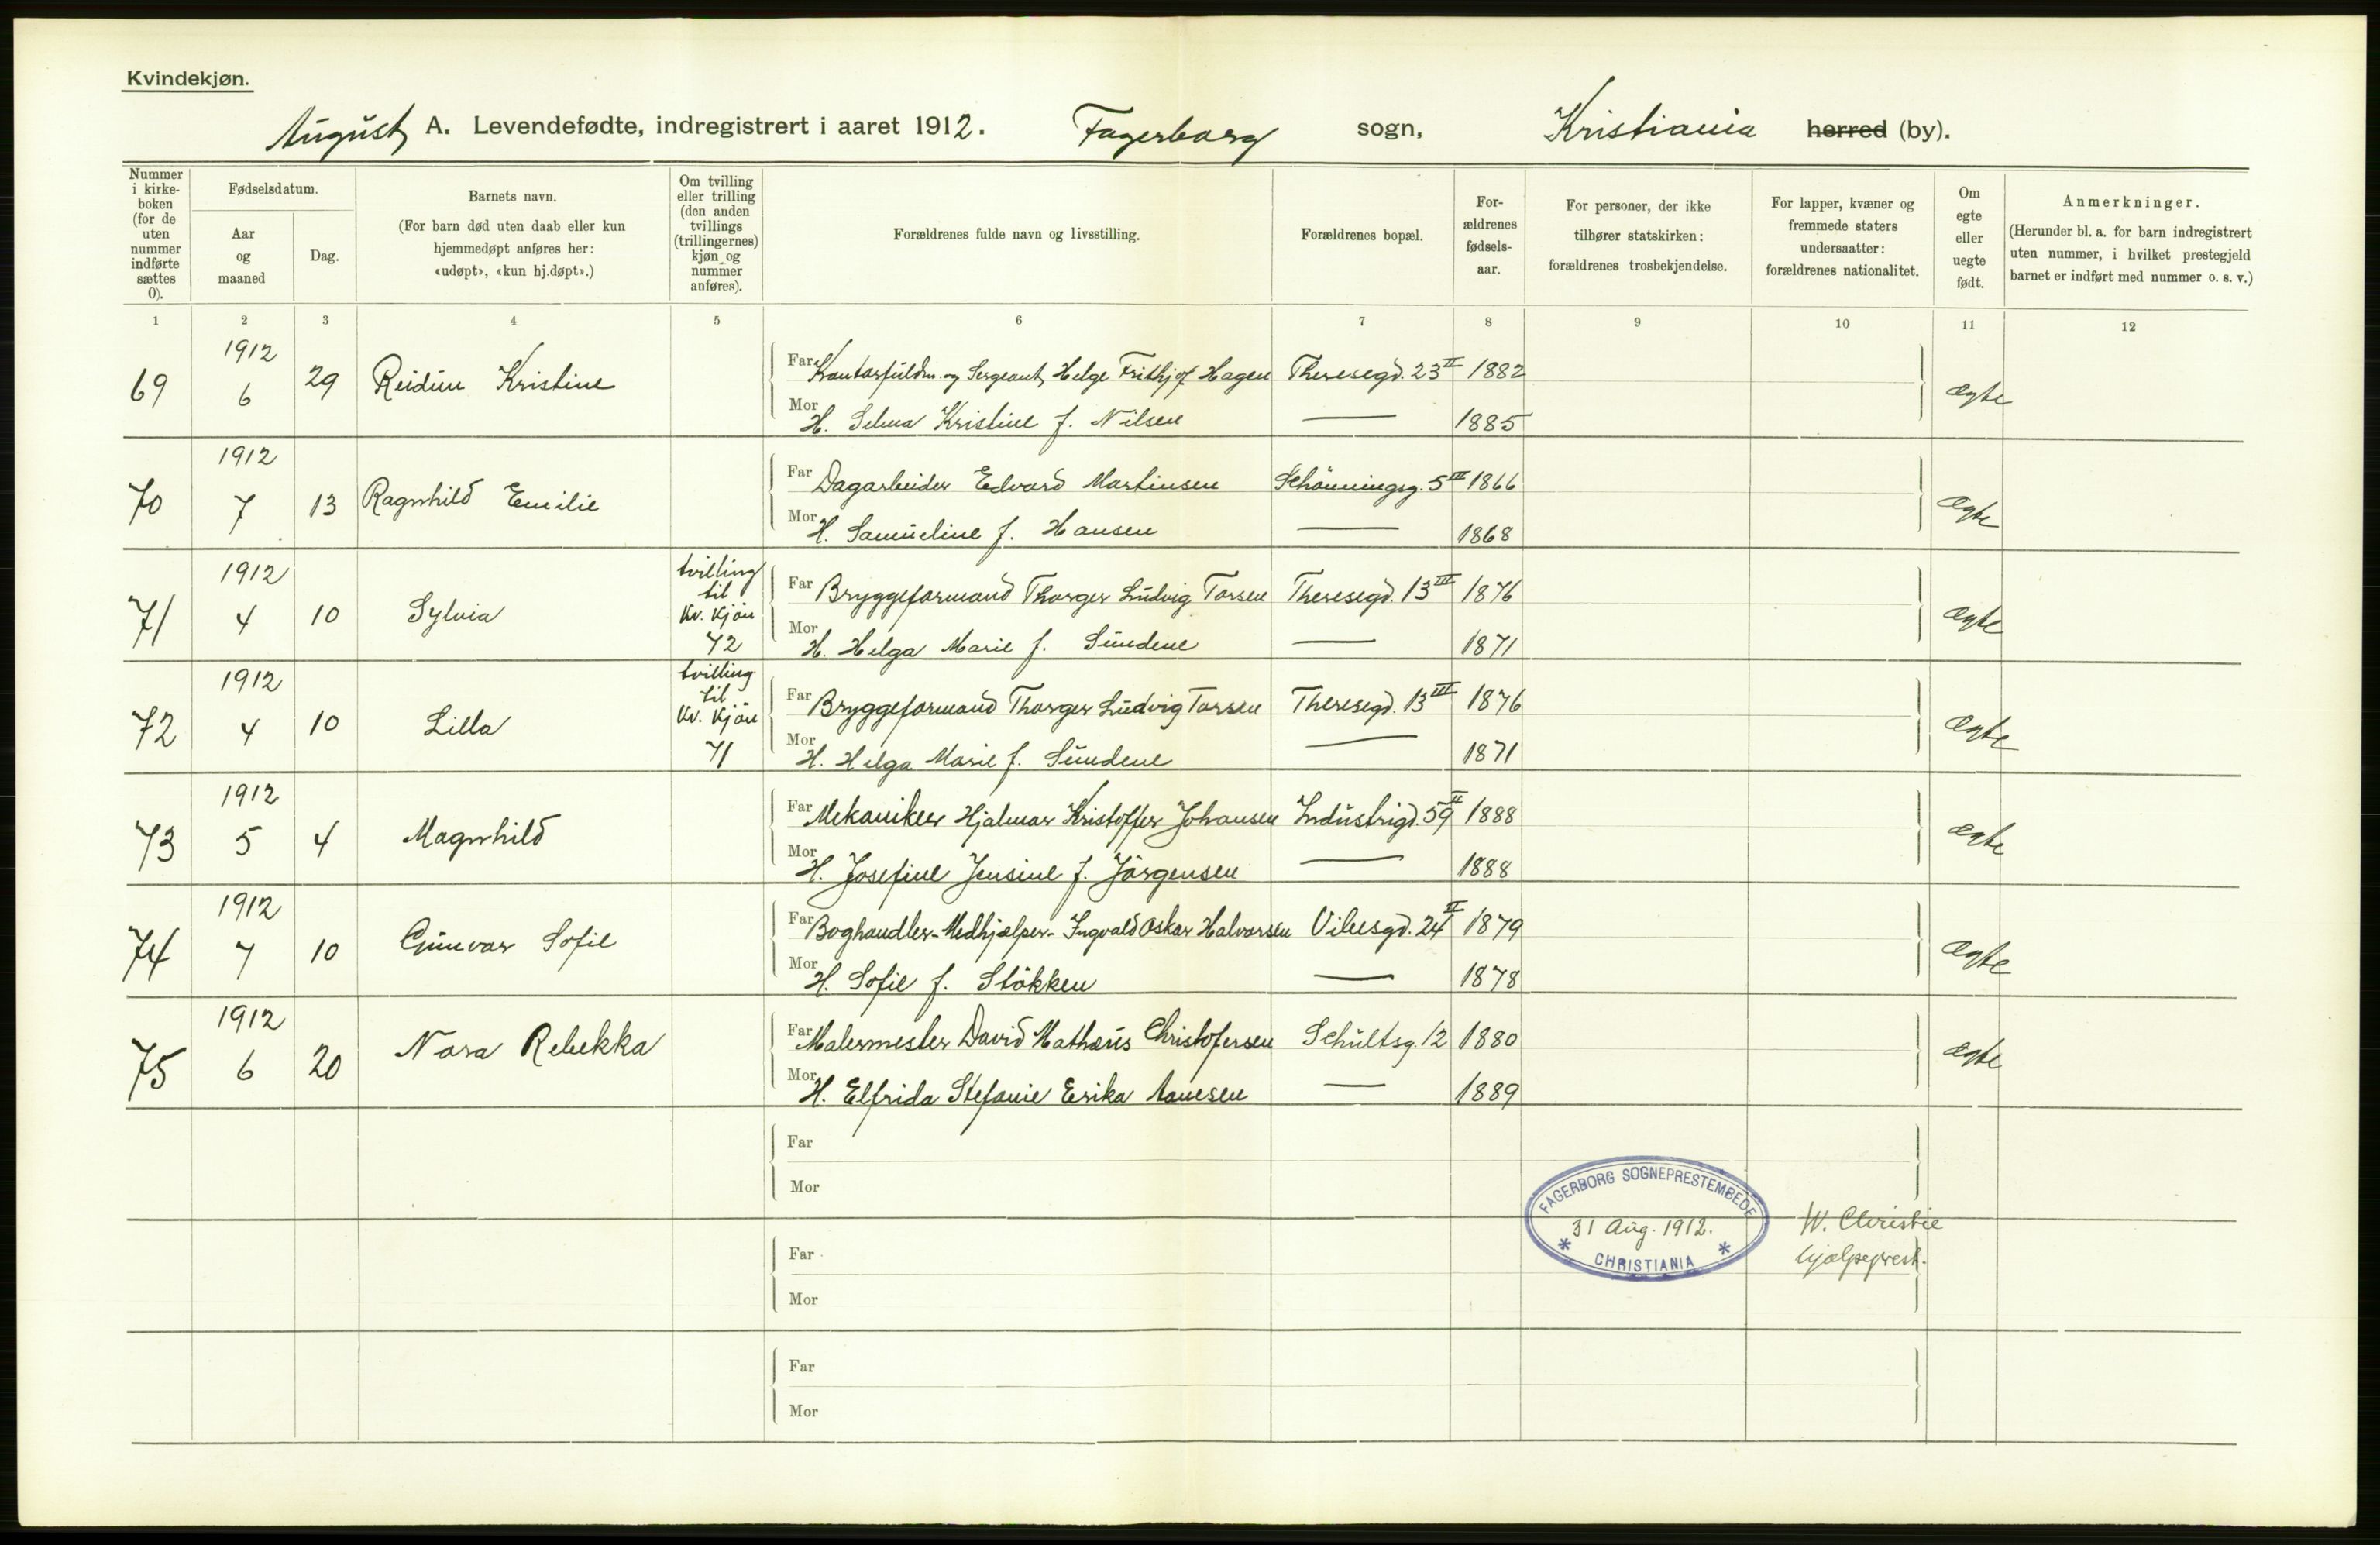 Kvindekjøn.
August A. Levendefødte, indregistrert i aaret 1912. Fagerborg sogn, Kristiania herred (by).
Nummer i kirke-boken (for de uten nummer indførte sættes 0).
Fødselsdatum.
Aar og maaned
Dag.
Barnets navn.
(For barn død uten daab eller kun hjemmedøpt anføres her: «udøpt», «kun hj.døpt».)
Om tvilling eller trilling (den anden tvillings (trillingernes) kjøn og nummer anføres).
Forældrenes fulde navn og livsstilling.
Forældrenes bopæl.
For-ældrenes fødsels-aar.
For personer, der ikke tilhører statskirken: forældrenes trosbekjendelse.
For lapper, kvæner og fremmede staters undersaatter: forældrenes nationalitet.
Om egte eller uegte født.
Anmerkninger.
(Herunder bl. a. for barn indregistrert uten nummer, i hvilket prestegjeld barnet er indført med nummer o. s. v.)
1 2 3 4 5 6 7 8 9 10 11 12
69 1912 6 29 Reidun Kristine Far Kontorfuldm. og Sergeant Helge Frithjof Hagen Theresegd. 23 II 1882 ægte
Mor H. Selma Kristine f. Nilsen — 1885
70 1912 7 13 Ragnhild Emilie Far Dagarbeider Edvard Martinsen Schönningsg. 5 III 1866 ægte
Mor H. Samueline f. Hansen — 1868
71 1912 4 10 Sylvia tvilling til Kv. Kjön 72 Far Bryggeformand Thorger Ludvig Torsen Theresegd. 13 III 1876 ægte
Mor H. Helga Marie f. Sundene — 1871
72 1912 4 10 Lilla tvilling til Kv. Kjön 71 Far Bryggeformand Thorger Ludvig Torsen Theresegd. 13 III 1876 ægte
Mor H. Helga Marie f. Sundene — 1871
73 1912 5 4 Magnhild Far Mekaniker Hjalmar Kristoffer Johansen Industrigd. 59 II 1888 ægte
Mor H. Josefine Jensine f. Jörgensen — 1888
74 1912 7 10 Gunvor Sofie Far Boghandler-Medhjælper- Ingvald Oskar Halvorsen Vibesgd. 24 II 1879 ægte
Mor H. Sofie f. Stökken — 1878
75 1912 6 20 Nora Rebekka Far Malermester David Mathæus Christofersen Schultsg. 12 1880 ægte
Mor H. Elfrida Stefanie Erika Aanesen — 1889
Far
Mor
Far
Mor
Far
Mor
FAGERBORG SOGNEPRESTEMBEDE
31 Aug. 1912.
* CHRISTIANIA *
W. Christie
hjælpeprest.